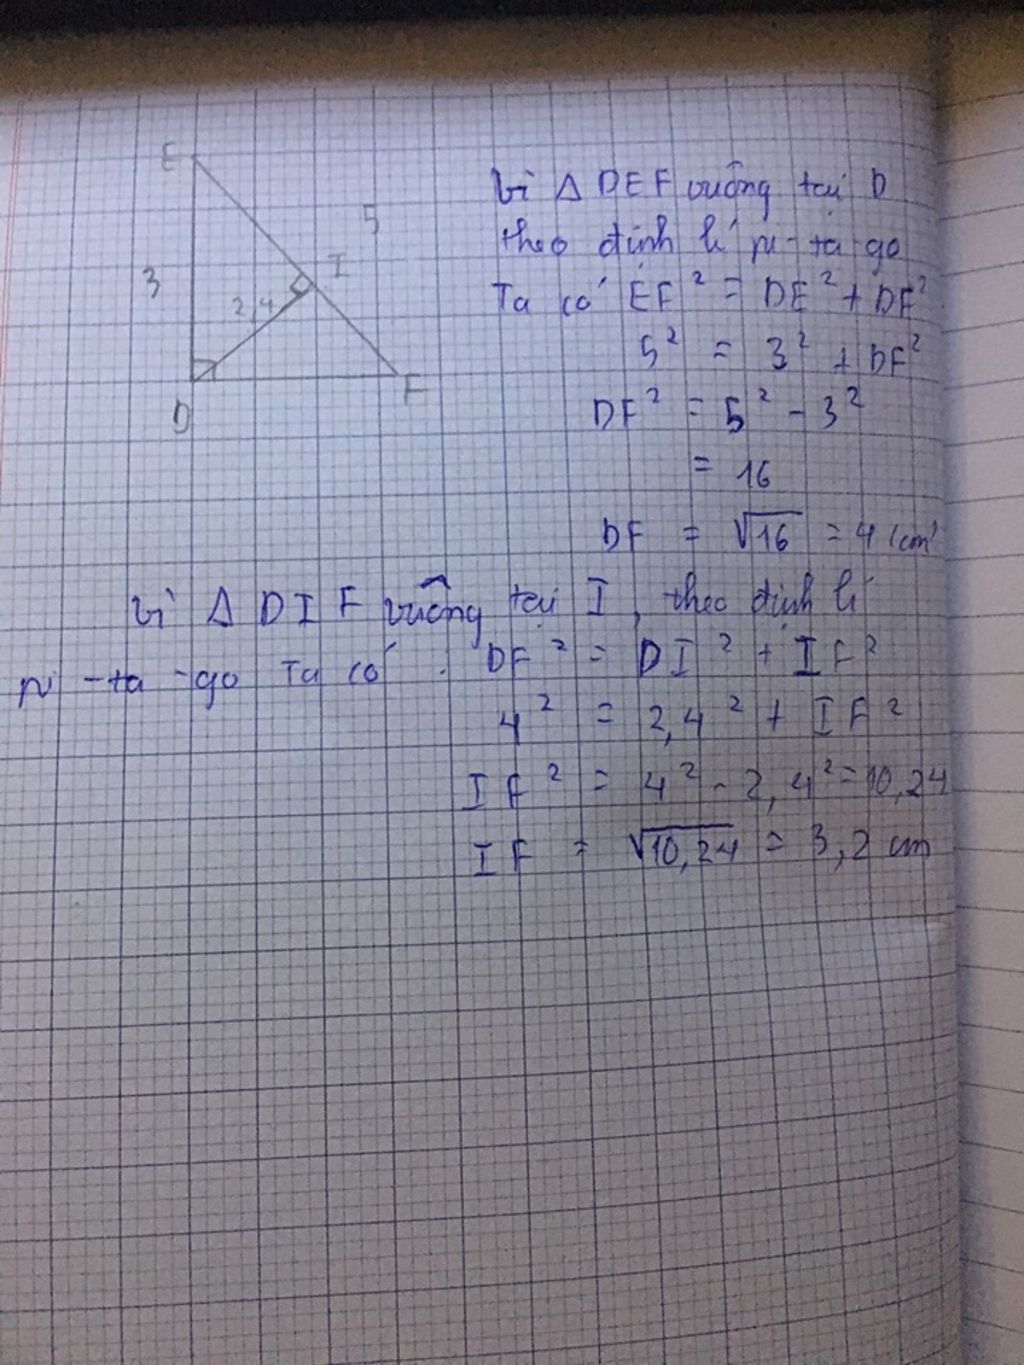 E
5
I
3
2,4
D
F
Vì Δ DEF vuông tại D
theo định lí pi-ta go
Ta có EF² = DE² + DF²
5² = 3² + DF²
DF² = 5² - 3²
= 16
DF = √16 = 4 (cm)
Vì Δ DIF vuông tại I, theo định lí
pi-ta-go Ta có. DF² = DI² + IF²
4² = 2,4² + IF²
IF² = 4² - 2,4² = 10,24
IF = √10,24 = 3,2 cm